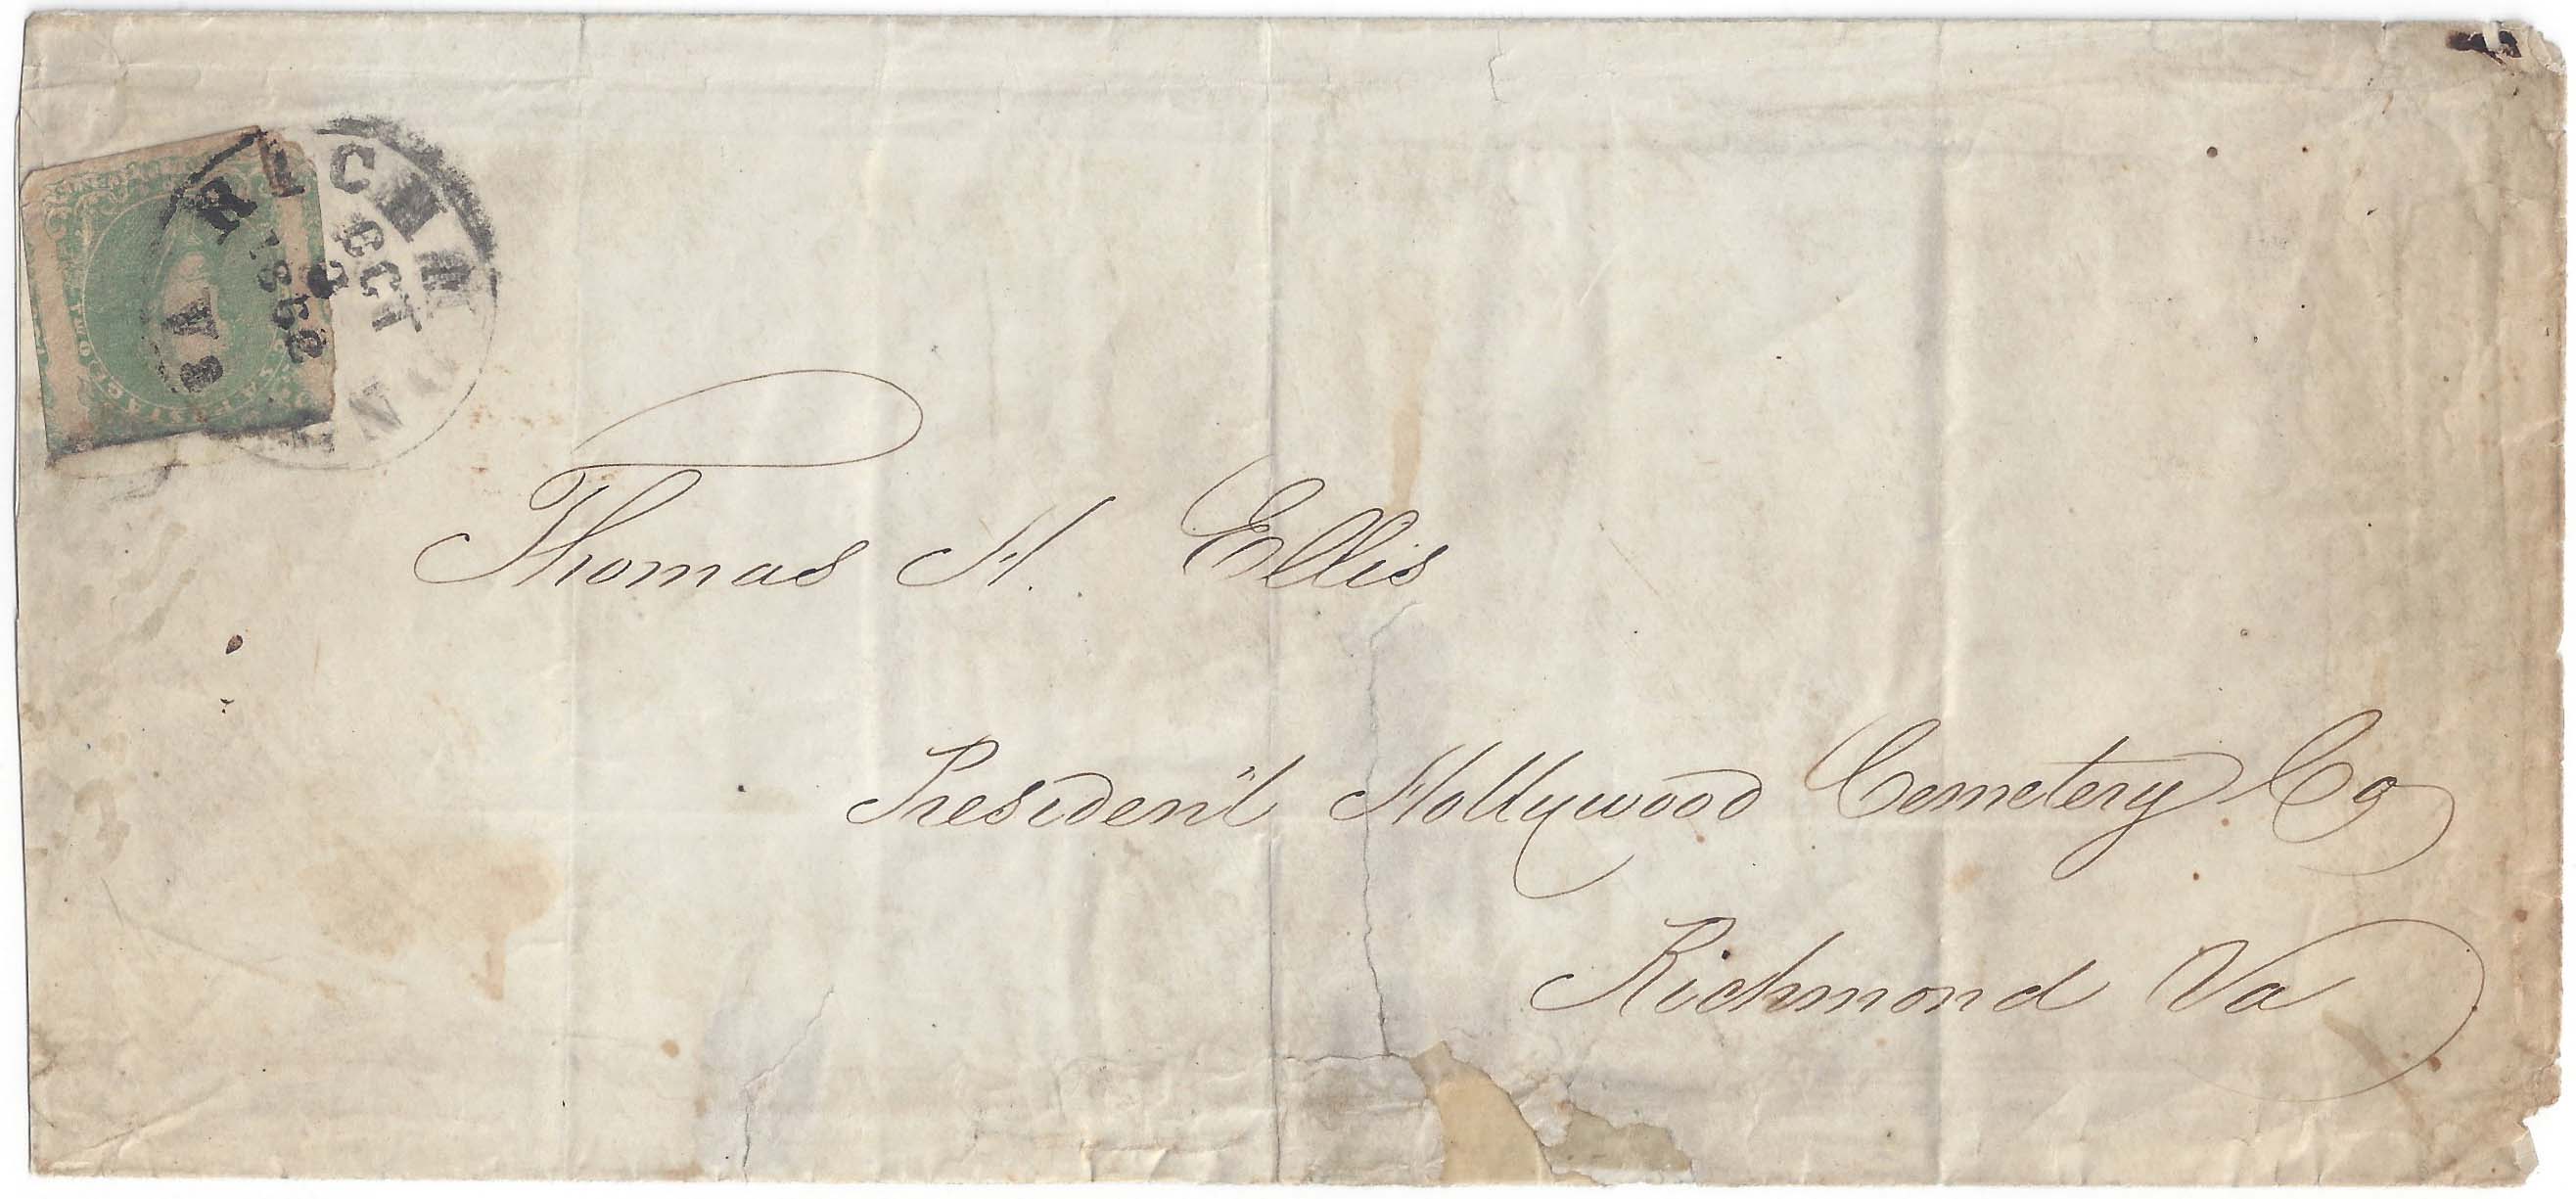 RICHMOND
OCT
2
1862
VA
TWO CENTS
Thomas H. Ellis
President Hollywood Cemetery Co
Richmond Va